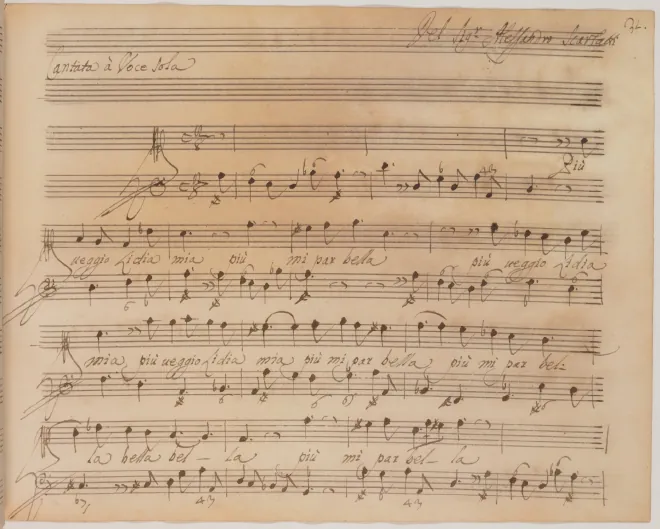 Del Sig.r Alessandro Scarlatti
34.
Cantata à Voce sola
Più
ueggio Lidia mia più mi par bella più ueggio Lidia
mia più ueggio Lidia mia più mi par bella più mi par bel=
la bella bel_ la più mi par bel_ la